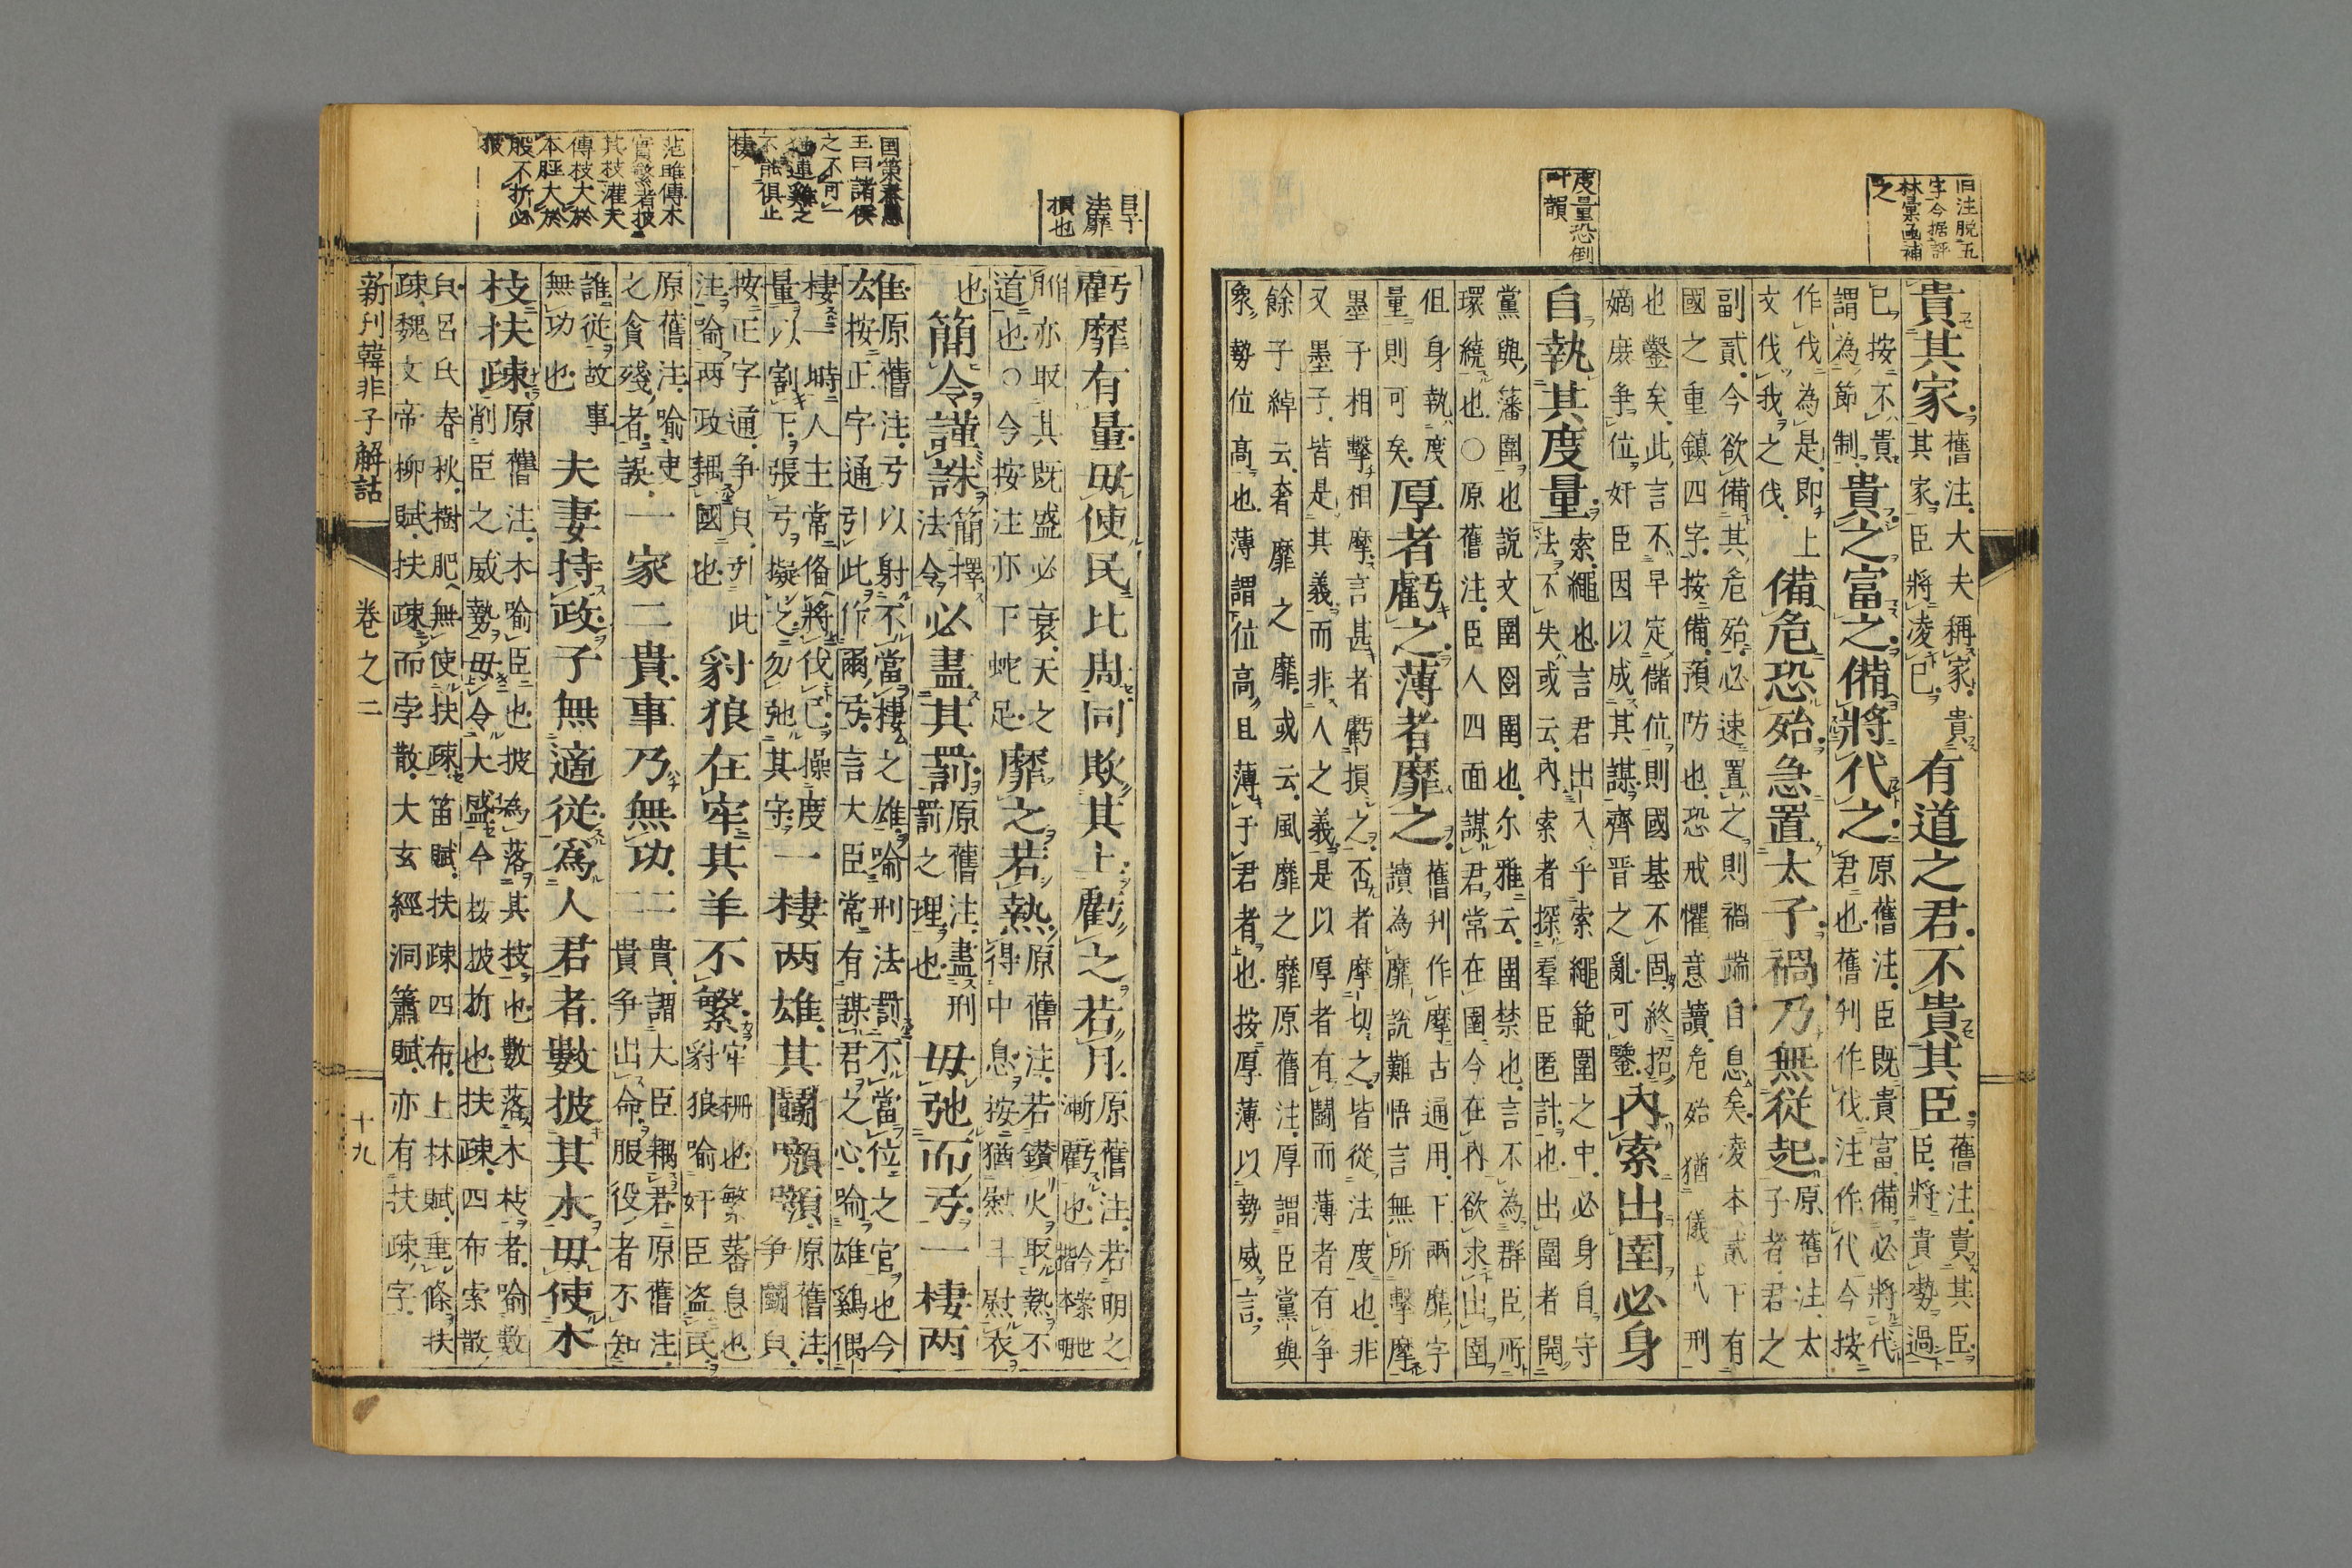 旧注脱五
字今据評
林彙函補
之
度量恐倒
叶韻
貴其家
舊注大夫稱家貴
其家臣將凌己
有道之君不貴其臣
舊注貴其臣
臣將貴勢過
己按不貴
謂為節制
貴之富之備將代之
原舊注臣既貴富備必將代
君也舊刋作伐注作代今按
作伐為是即上
文伐我之伐
備危恐殆急置太子禍乃無從起
原舊注太
子者君之
副貳今欲備其危殆必速置之則禍端自息矣凌本貳下有
國之重鎮四字按備預防也恐戒懼意讀危殆猶儀弋刑
也鑿矣此言不早定儲位則國基不固終招
嫡庶争位奸臣因以成其謀齊晋之亂可鑒
内索出圉必身
自執其度量
索繩也言君出入乎索繩範圍之中必身自守
法不失或云内索者探羣臣匿計也出圍者開
黨與藩圍也説文圉囹圉也尓雅云圉禁也言不為群臣所
環繞也○原舊注臣人四面謀君常在圉今在内欲求出圉
但身執度
量則可矣
厚者虧之薄者靡之
舊刋作摩古通用下兩靡字
讀為靡説難悟言無所擊摩
墨子相擊相摩言甚者虧損之否者摩切之皆從法度也非
又墨子皆是其義而非人之義是以厚者有鬪而薄者有争
餘子綽云奢靡之靡或云風靡之靡原舊注厚謂臣黨與
衆勢位高也薄謂位高且薄于君者也按厚薄以勢威言
旧刋
注靡
損也
国策秦恵
王曰諸侯
之不可一
猶連雞之
不能俱止
棲
范雎傳木
實繁者披
其枝灌夫
傳枝大於
本脛大於
股不折必
披
虧靡有量毋使民比周同欺其上虧之若月
原舊注若明之
漸虧也
所亦取其既盛必衰天之
道也○今按注亦下蛇足
靡之若熱
原舊注若鑽火取熱不
得中息按猶慰斗慰衣
也
簡令謹誅
簡擇
法令
必盡其罰
原舊注盡刑
罰之理也
毋弛而弓一棲两
雄
原舊注弓以射不當棲之雄喻刑法罰不當位之官也今
按正字通引此作爾弓言大臣常有謀君之心喻雄鷄偶
棲一塒人主常偹將伐己操度
量以割下張弓擬之勿弛其守
一棲两雄其鬪㘖㘖
原舊注
争鬪貟
按正字通争貟刋此
注喻两政耦國也
豺狼在牢其羊不繁
牢栅也繁蕃息也
豺狼喻奸臣盗民
原舊注喻吏
之貪殘者誤
一家二貴事乃無功
二貴謂大臣耦君原舊注
二貴争出命服役者不知
誰從故事
無功也
夫妻持政子無適從爲人君者數披其木毋使木
枝扶疎
原舊注木喻臣也披為落其枝也數落木枝者喻數
削臣之威勢毋令大盛今按披折也扶疎四布索散
皃呂氏春秋樹肥無使扶疎笛賦扶疎四布上林賦垂條扶
疎魏文帝柳賦扶疎而孛散大玄經洞簫賦亦有扶疎字
新刋韓非子解詁
卷之二
十九